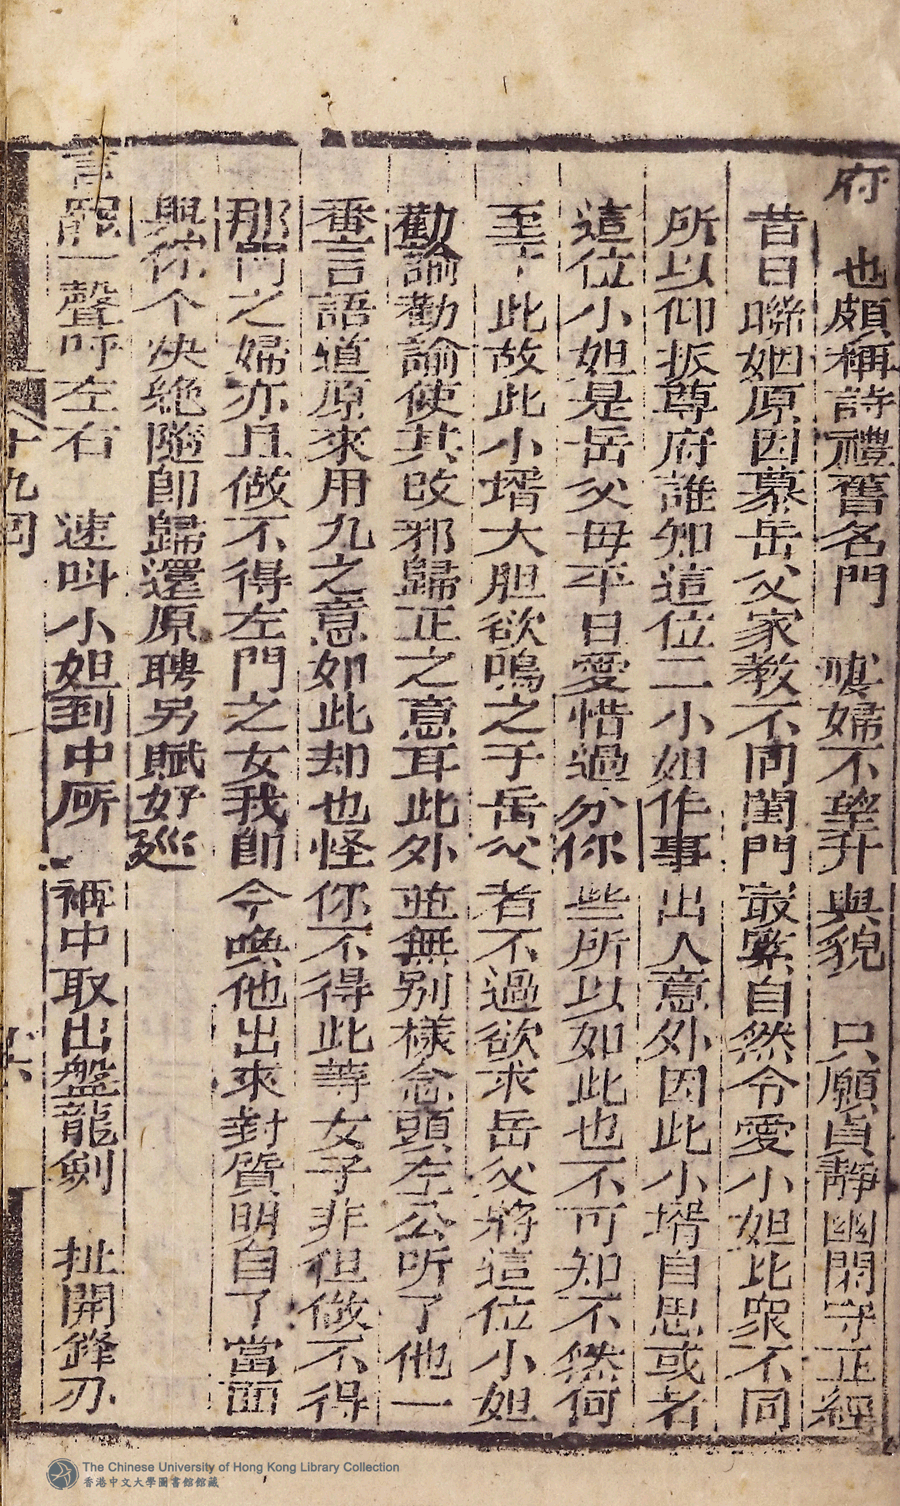 府　也頗稱詩禮舊名門　㛠婦不望升與貌　只願貞靜幽閑守正經
昔日聯姻原因慕岳父家教不同閨門最緊自然令愛小姐比衆不同
所以仰扳尊府誰知這位二小姐作事出人意外因此小壻自思或者
這位小姐是岳父母平日愛惜過分你些所以如此也不可知不然何
至于此故此小壻大胆欲鳴之于岳父者不過欲求岳父將這位小姐
勸諭勸諭使其改邪歸正之意耳此外並無别樣念頭左公听了他一
番言語道原來用九之意如此却也怪你不得此等女子非但做不得
那門之婦亦且做不得左門之女我即今喚他出來對質明白了當面
與你个决絶隨即歸還原聘另賦好逑
言罷一聲呼左右　速呌小姐到中所　褲中取出盤龍劍　扯開鋒刃
十九囘